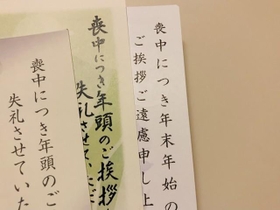 喪中につき年末年始の
ご挨拶ご遠慮申し上
喪中につき年頭のご挨拶
失礼させていただ
喪中につき年頭のご
失礼させていた